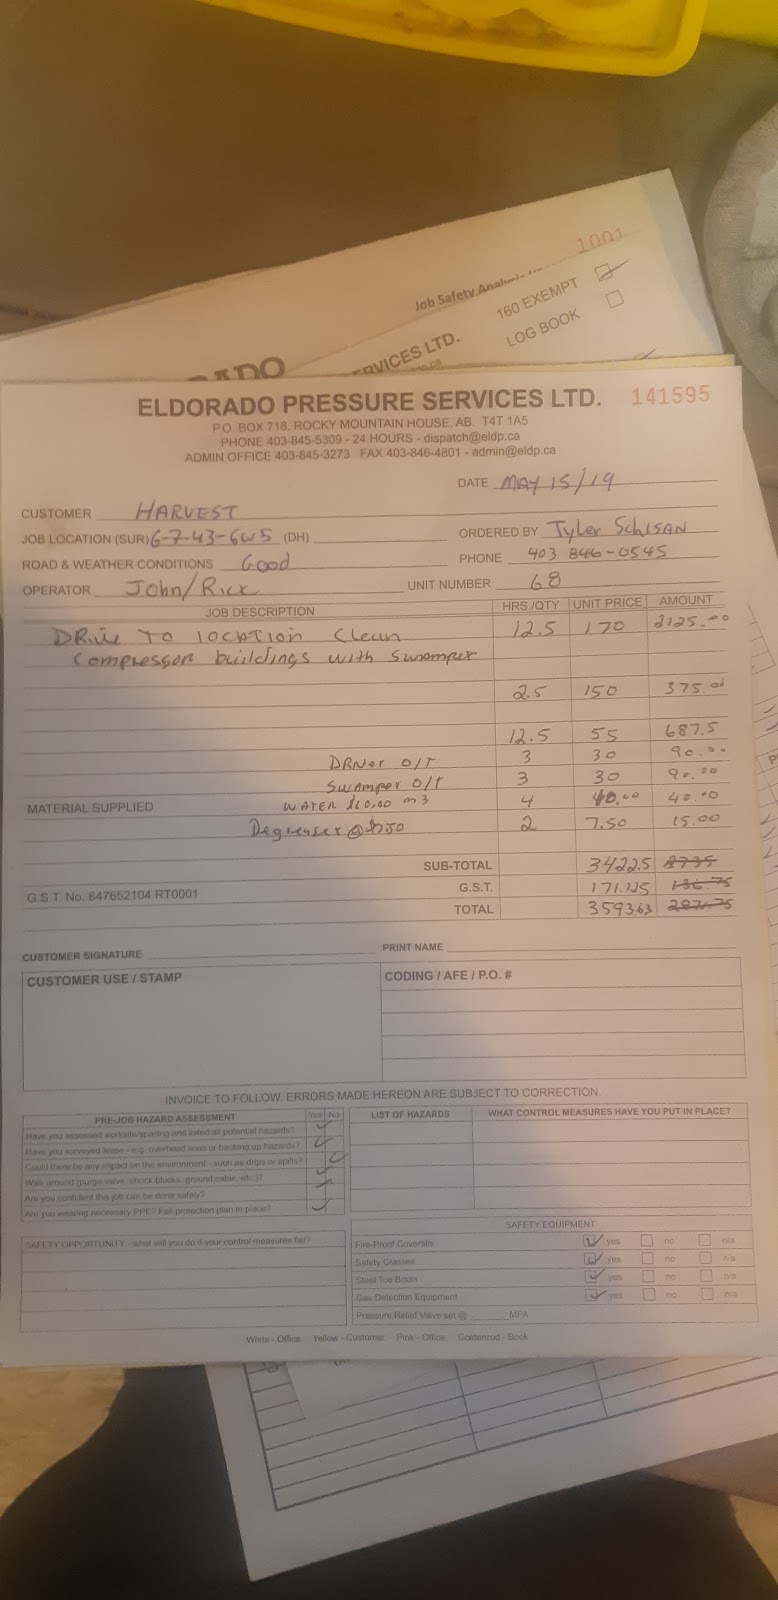 1001
Job Safety
160 EXEMPT
LOG BOOK
SERVICES LTD.
ELDORADO PRESSURE SERVICES LTD. 141595
P.O. BOX 718, ROCKY MOUNTAIN HOUSE, AB. T4T 1A5
PHONE 403-845-5309 - 24 HOURS - dispatch@eldp.ca
ADMIN OFFICE 403-845-3273 FAX 403-846-4801 - admin@eldp.ca
DATE MAY 15/19
CUSTOMER HARVEST
JOB LOCATION (SUR) 6-7-43-6W5 (DH) ORDERED BY Tyler Schlsan
ROAD & WEATHER CONDITIONS Good PHONE 403 846-0545
OPERATOR John/Rick UNIT NUMBER 68
JOB DESCRIPTION HRS./QTY UNIT PRICE AMOUNT
DRive To location Clean 12.5 170 2125.00
Compressor buildings with Swamper
2.5 150 375.00
12.5 55 687.5
DRiver O/T 3 30 90.00
Swamper O/T 3 30 90.00
MATERIAL SUPPLIED WATER $10.00 m3 4 40.00 40.00
Degreaser @ 2 7.50 15.00
SUB-TOTAL 3422.5 2735
G.S.T. No. 847652104 RT0001 G.S.T. 171.125 136.75
TOTAL 3593.63 2871.75
CUSTOMER SIGNATURE PRINT NAME
CUSTOMER USE / STAMP CODING / AFE / P.O. #
INVOICE TO FOLLOW. ERRORS MADE HEREON ARE SUBJECT TO CORRECTION.
PRE-JOB HAZARD ASSESSMENT Yes No LIST OF HAZARDS WHAT CONTROL MEASURES HAVE YOU PUT IN PLACE?
Have you assessed worksite/spacing and listed all potential hazards?
Have you surveyed lease - e.g. overhead lines or backing up hazards?
Could there be any impact on the environment - such as drips or spills?
Walk around (purge valve, chock blocks, ground cable, etc.)?
Are you confident this job can be done safely?
Are you wearing necessary PPE? Fall protection plan in place?
SAFETY EQUIPMENT
SAFETY OPPORTUNITY - what will you do if your control measures fail?
Fire-Proof Coveralls yes no n/a
Safety Glasses yes no n/a
Steel Toe Boots yes no n/a
Gas Detection Equipment yes no n/a
Pressure Relief Valve set @ MPA
White - Office Yellow - Customer Pink - Office Goldenrod - Book